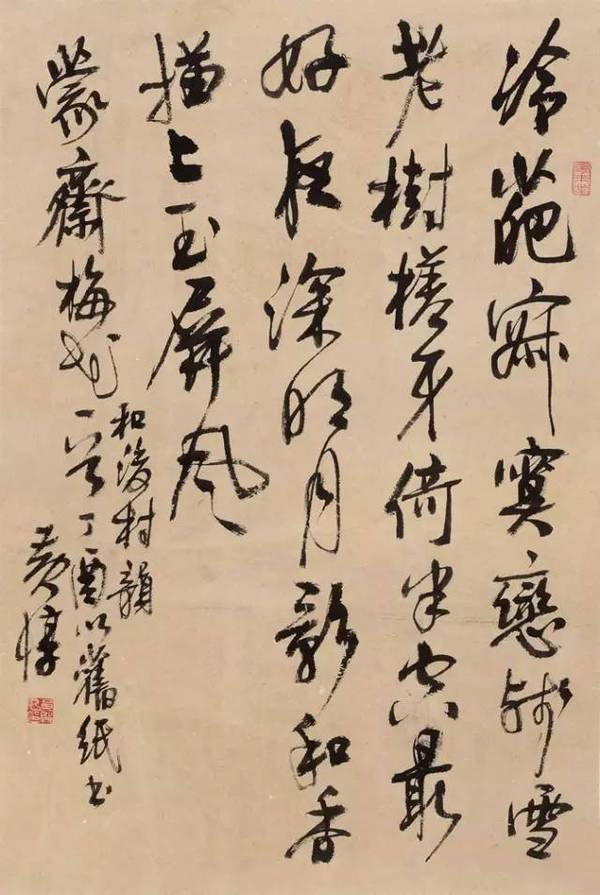 冷葩寂寞戀殘雪
老樹槎牙倚半空最
好夜深明月影和香
描上玉屏風
和後村韻
蒙齋梅花一首丁酉以舊紙書
黄惇